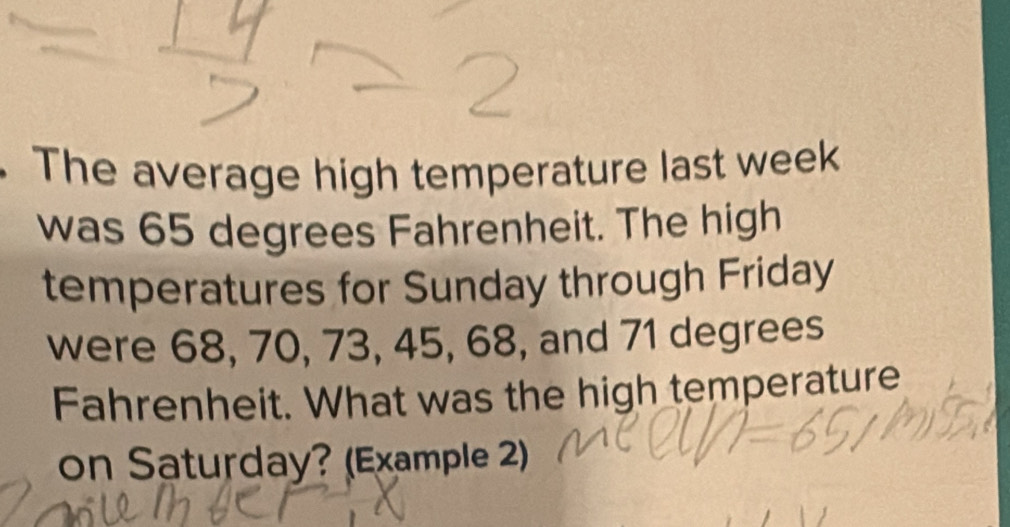 = 14/7 = 2
The average high temperature last week
was 65 degrees Fahrenheit. The high
temperatures for Sunday through Friday
were 68, 70, 73, 45, 68, and 71 degrees
Fahrenheit. What was the high temperature
on Saturday? (Example 2) mean = 65,
x